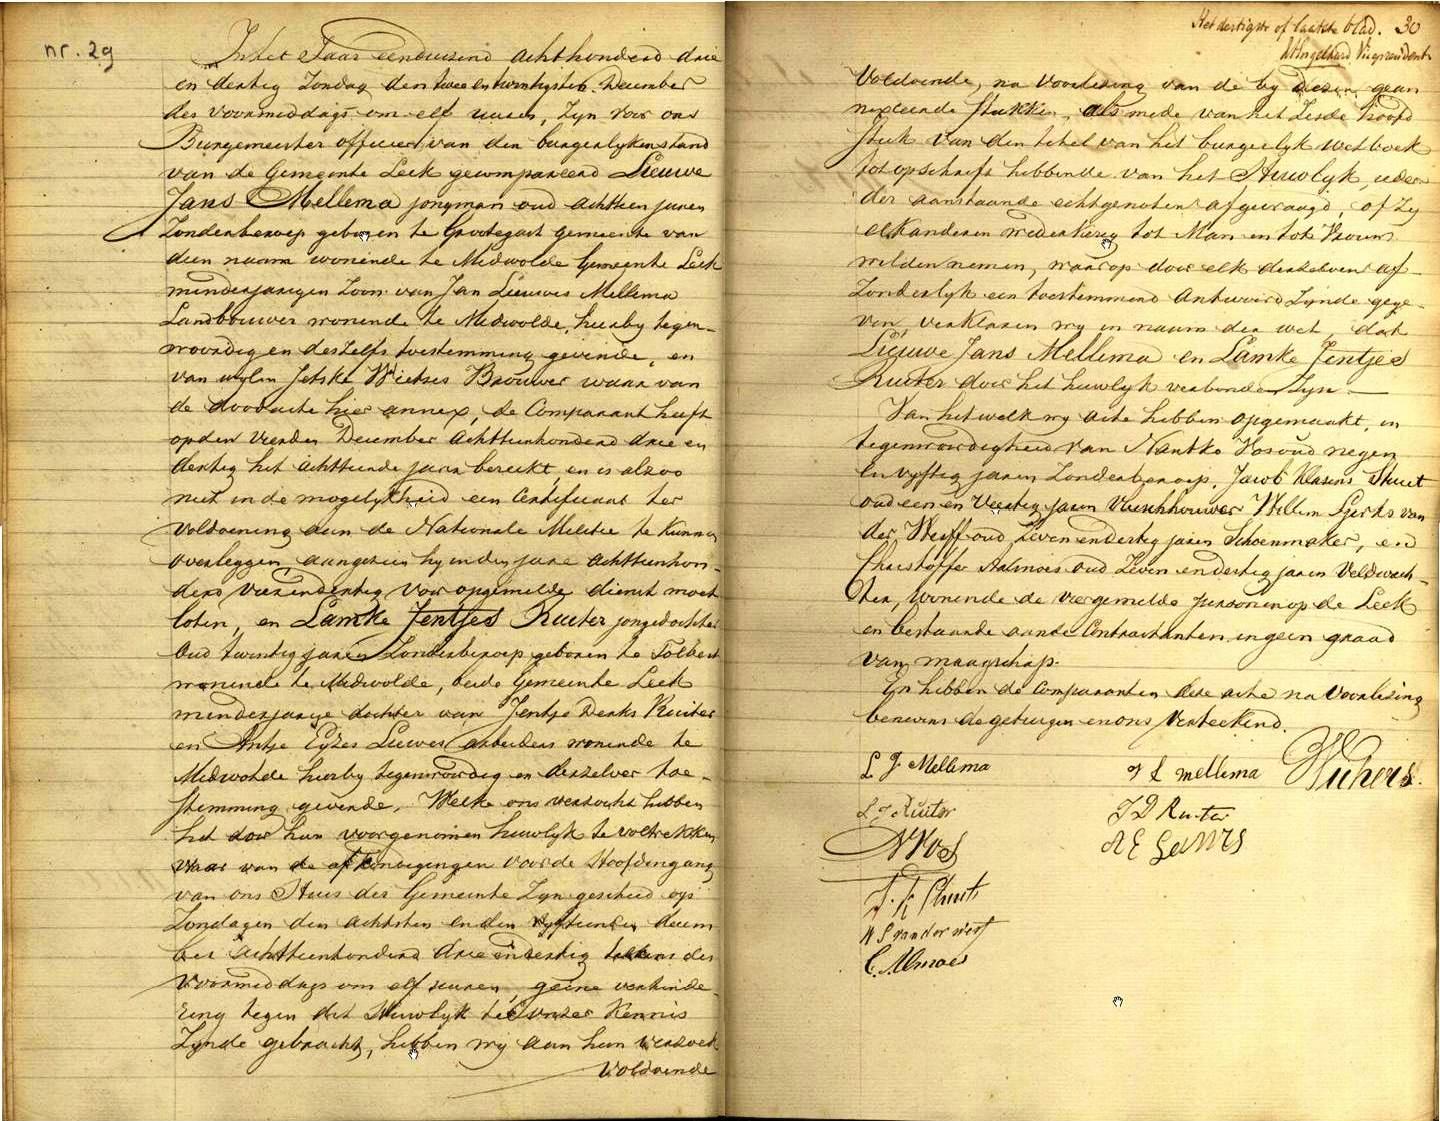 nr. 29
In het Jaar eenduizend achthonderd drie
en dertig Zondag den twee en twintigsten December
des voormiddags om elf uuren, Zyn voor ons
Burgemeester officier van den burgerlyken stand
van de Gemeente Leek gecompareerd Lieuwe
Jans Mellema jongman oud achttien jaren
Zonder beroep geboren te Grootegast gemeente van
dien naam wonende te Midwolde Gemeente Leek
minderjarigen Zoon van Jan Lieuwes Mellema
Landbouwer wonende te Midwolde, hierby tegen-
woordig en deszelfs toestemming gevende, en
van wylen Jetske Wietses Brouwer waar van
de doodacte hier annex, de Comparant heeft
op den vierden December achttienhonderd drie en
dertig het achttiende jaar bereikt, en is alzoo
niet in de mogelykheid een Certificaat ter
voldoening aan de Nationale Militie te kunnen
overleggen, aangezien hy in den jare achttienhon-
derd vierendertig voor opgemelde dienst moet
loten, en Lamke Jentjes Ruiter jongedochter
Oud twintig jaren Zonder beroep geboren te Tolbert
wonende te Midwolde, beide Gemeente Leek
minderjarige dochter van Jentje Derks Ruiter
en Antje Eyzes Lieuwes arbeiders wonende te
Midwolde hierby tegenwoordig en derzelver toe-
stemming gevende. Welke ons verzocht hebben
het door hun voorgenomen huwlyk te voltrekken
waar van de afkondigingen voor de Hoofdingang
van ons Huis der Gemeente Zyn geschied op
Zondagen den achtsten en den vyftienden decem
ber achttienhonderd drie en dertig telkens des
voormiddags om elf uuren, geene verhinde-
ring tegen dit Huwlyk ter onzer Kennis
Zynde gebracht, hebben wy aan hun verzoek
Voldoende
Het dertigste of laatste blad. 30
Voldoende, na voorlezing van de by dezen gean
nexeerde stukken, als mede van het Zesde hoofd
stuk van den titel van het burgerlyk wetboek
tot opschrift hebbende van het Huwlyk, ieder
der aanstaande echtgenoten afgevraagd, of Zy
elkanderen wederkerig tot Man en tot Vrouw
wilden nemen, waarop door elk derzelven af-
Zonderlyk een toestemmend Antwoord Zynde gege-
ven, verklaren wy in naam der wet, dat
Lieuwe Jans Mellema en Lamke Jentjes
Ruiter door het huwlyk verbonden Zyn.
Van het welk wy acte hebben opgemaakt, in
tegenwoordigheid van Nantko Vos oud negen
en vyftig jaren Zonder beroep, Jacob Klasens Stuit
oud een en veertig jaren Vleeschhouwer Willem Sjerks van
der Werff oud Zeven en dertig jaren Schoenmaker, en
Christoffer Almoes oud Zeven en dertig jaren Veldwach-
ter, wonende de voorgemelde personen op de Leek
en bestaande aan de Contractanten in geen graad
van maagschap.
En hebben de Comparanten deze acte na voorlezing
benevens de getuigen en ons verteekend.
L J Mellema
J L mellema
L J Ruiter
J D Ruiter
N Vos
A E Lieuwes
J. K Stuit
W S van der Werf
C. Almoes